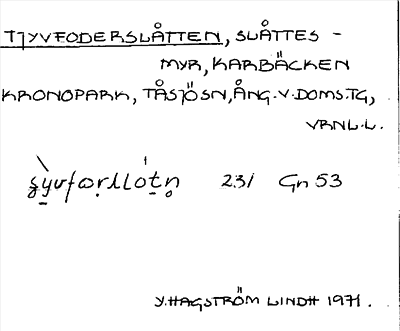 TJYVFODERSLÅTTEN, SLÅTTES-
MYR, KARBÄCKEN
KRONOPARK, TÅSJÖSN, ÅNG.V.DOMS.TG,
VRNL.L.
231 Gn 53
Y. HAGSTRÖM LINDH 1971.